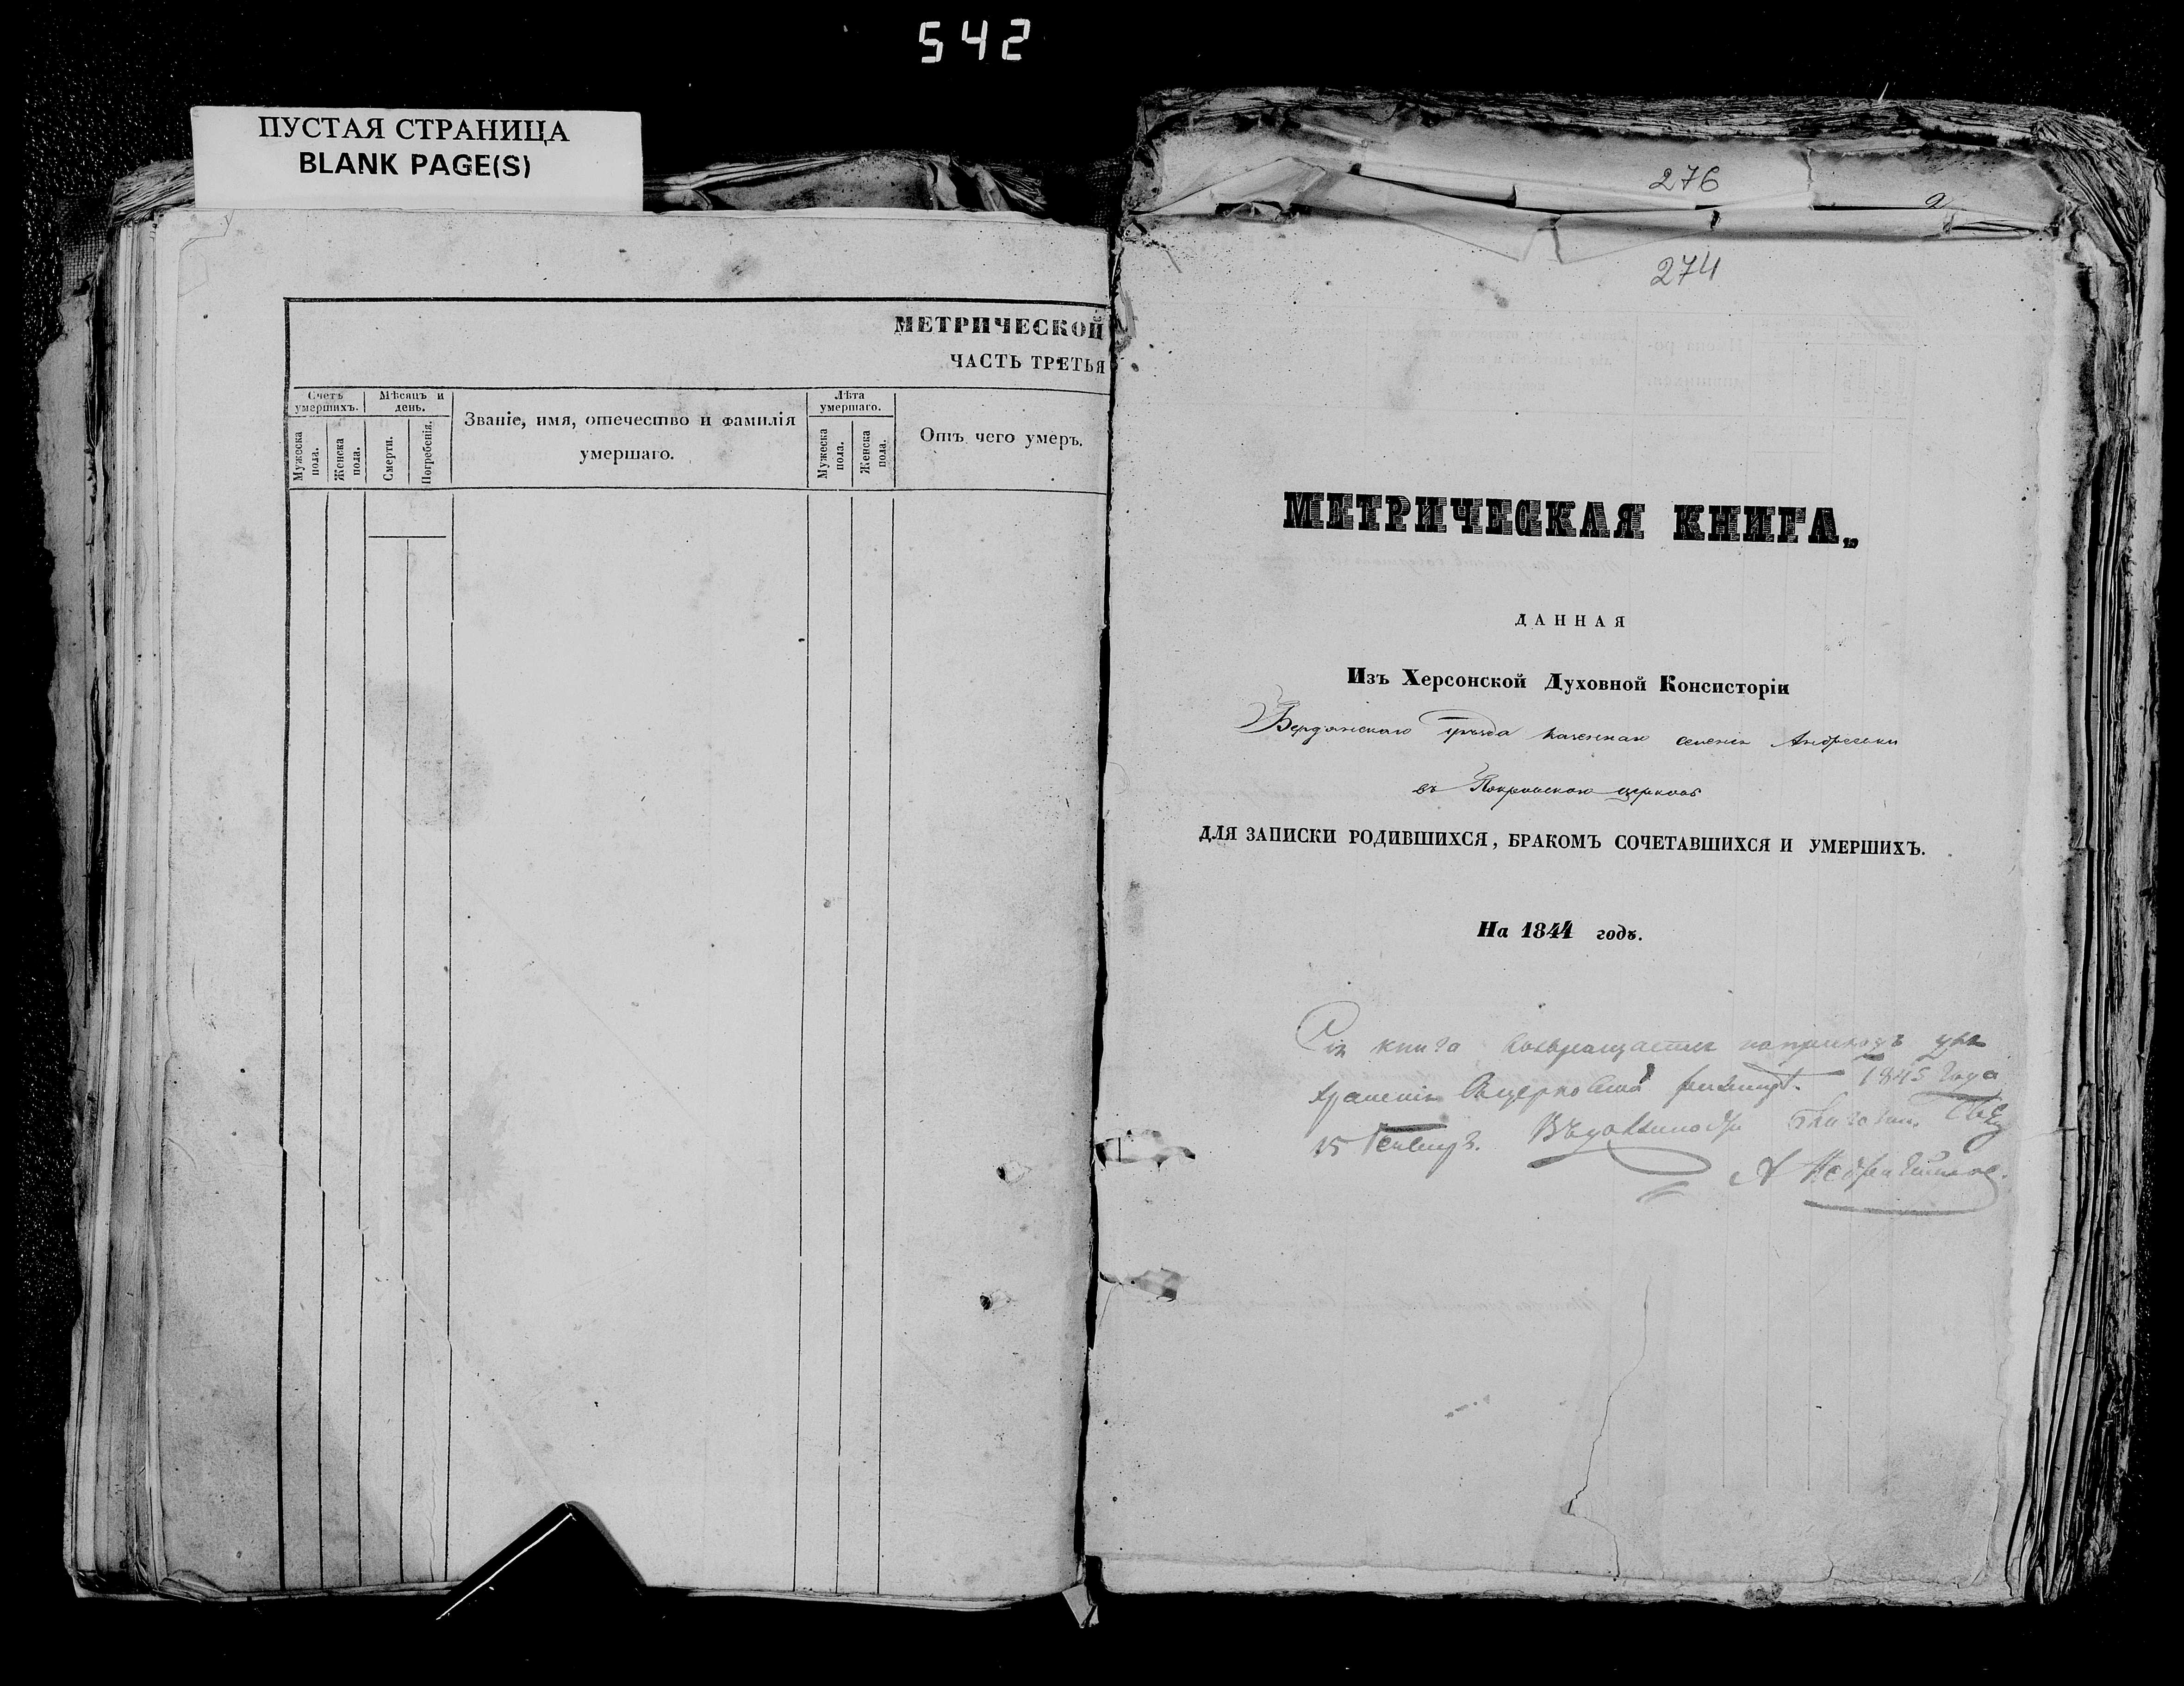 542
ПУСТАЯ СТРАНИЦА
BLANK PAGE(S)
МЕТРИЧЕСКОЙ
ЧАСТЬ ТРЕТЬЯ
Счетъ умершихъ.
Мужеска пола.
Женска пола.
Мѣсяцъ и день.
Смерти.
Погребенія.
Званіе, имя, отечество и фамилія
умершаго.
Лѣта умершаго.
Мужеска пола.
Женска пола.
Отъ чего умеръ.
276
274
МЕТРИЧЕСКАЯ КНИГА,
ДАННАЯ
Изъ Херсонской Духовной Консисторіи
Бердянскаго уѣзда казенная селенія Андреевки
въ Покровскою церковь
ДЛЯ ЗАПИСКИ РОДИВШИХСЯ, БРАКОМЪ СОЧЕТАВШИХСЯ И УМЕРШИХЪ.
На 1844 годъ.
Сія книга возвращается для
храненія 1845 года
15 Генваря.